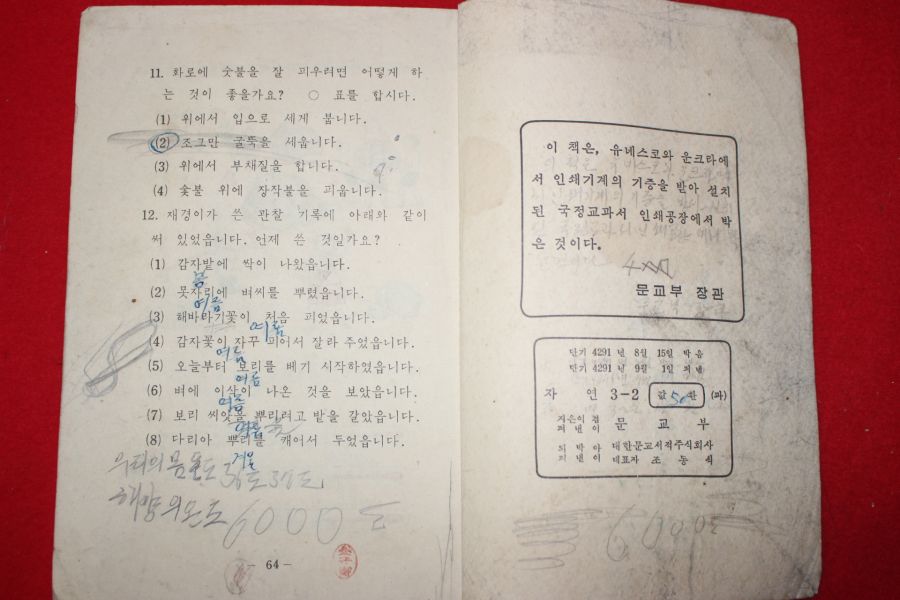 11. 화로에 숯불을 잘 피우려면 어떻게 하
는 것이 좋을가요? ○ 표를 합시다.
(1) 위에서 입으로 세게 붑니다.
(2) 조그만 굴뚝을 세웁니다.
(3) 위에서 부채질을 합니다.
(4) 숯불 위에 장작불을 피웁니다.
12. 재경이가 쓴 관찰 기록에 아래와 같이
써 있었읍니다. 언제 쓴 것일가요?
(1) 감자밭에 싹이 나왔읍니다.
봄
(2) 못자리에 벼씨를 뿌렸읍니다.
여름
(3) 해바라기꽃이 처음 피었읍니다.
여름
(4) 감자꽃이 자꾸 피어서 잘라 주었읍니다.
여름
(5) 오늘부터 보리를 베기 시작하였읍니다.
여름
(6) 벼에 이삭이 나온 것을 보았읍니다.
여름
(7) 보리 씨앗을 뿌리려고 밭을 갈았읍니다.
여름
(8) 다리아 뿌리를 캐어서 두었읍니다.
겨울
우리의 몸 온도
해양의 온도 6000도
- 64 -
이 책은, 유네스코와 운크라에
서 인쇄기계의 기증을 받아 설치
된 국정교과서 인쇄공장에서 박
은 것이다.
문교부 장관
단기 4291 년 8월 15일 박음
단기 4291 년 9월 1일 펴냄
자 연 3-2 값 50환 (파)
지은이 겸 펴낸이 문 교 부
박아 펴낸이 대한문교서적주식회사
대표자 조동식
6000도